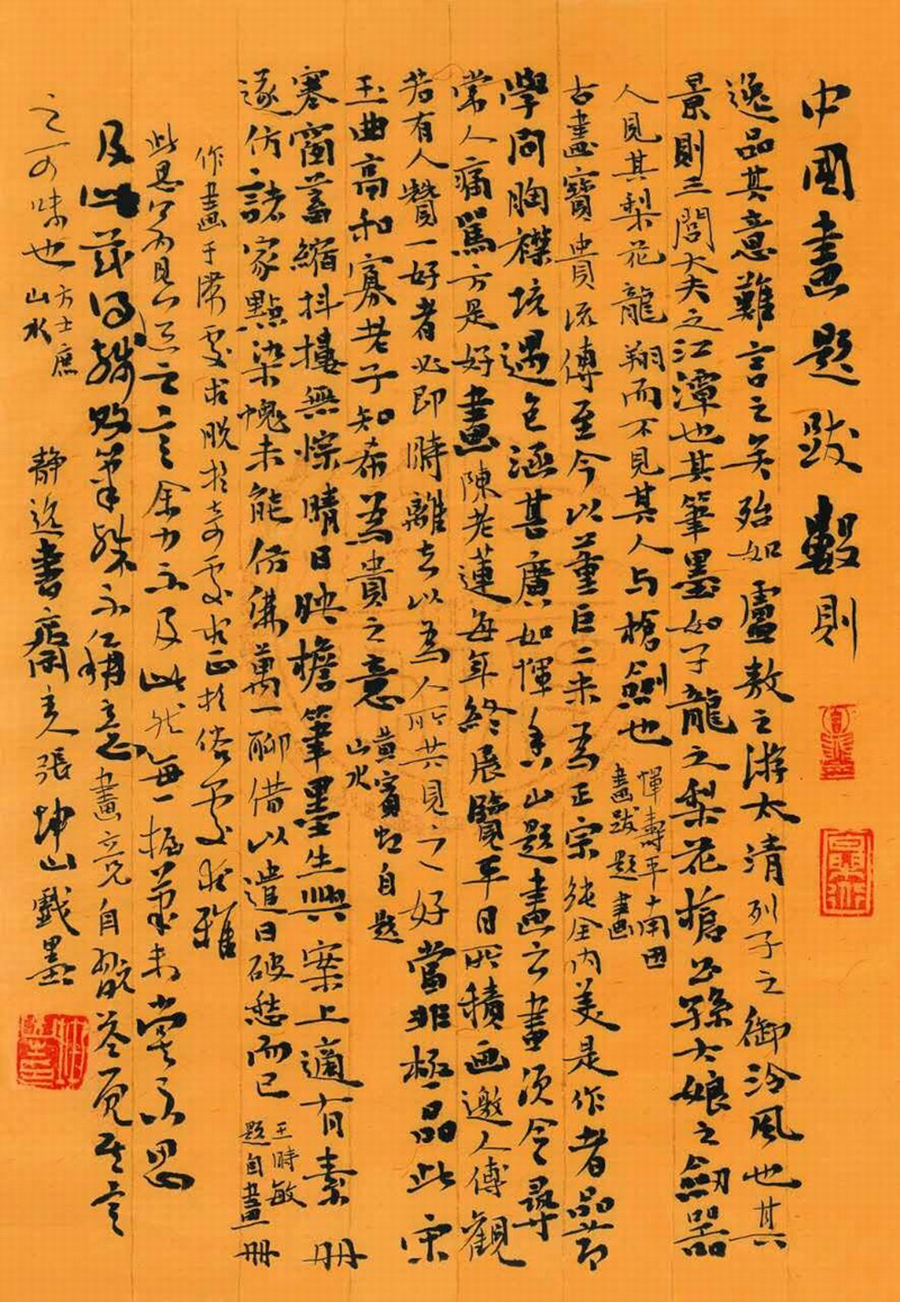 中國畫題跋數則
逸品其意難言之矣殆如盧敖之游太清列子之御泠風也其
景則三閭大夫之江潭也其筆墨如子龍之梨花槍公孫大娘之劍器
人見其梨花龍翔而不見其人与槍劍也 惲壽平南田
畫跋題畫
古畫寶貴流傳至今以董巨二米為正宗純全內美是作者品節
學問胸襟境遇包涵甚廣如惲香山題畫云畫須令尋
常人痛罵方是好畫陳老蓮每年終展覽平日所積画邀人傳觀
若有人贊一好者必即時離去以為人所共見之好當非極品此宋
玉曲高和寡老子知希為貴之意 黃賓虹自題
山水
寒窗蓄縮抖擻無悰晴日映檐筆墨生興案上適有素冊
遂仿諸家點染愧未能仿佛萬一聊借以遣日破愁而已 王時敏
題自畫冊
作畫于深處求脫於奇處求正於俗處求雅
此思翁不見之言余力不及此然每一搦筆未嘗不思
及此或敗筆殊不稱意畫竟自
之可味也 方士庶
山水
靜遠書齋主人張坤山戲墨